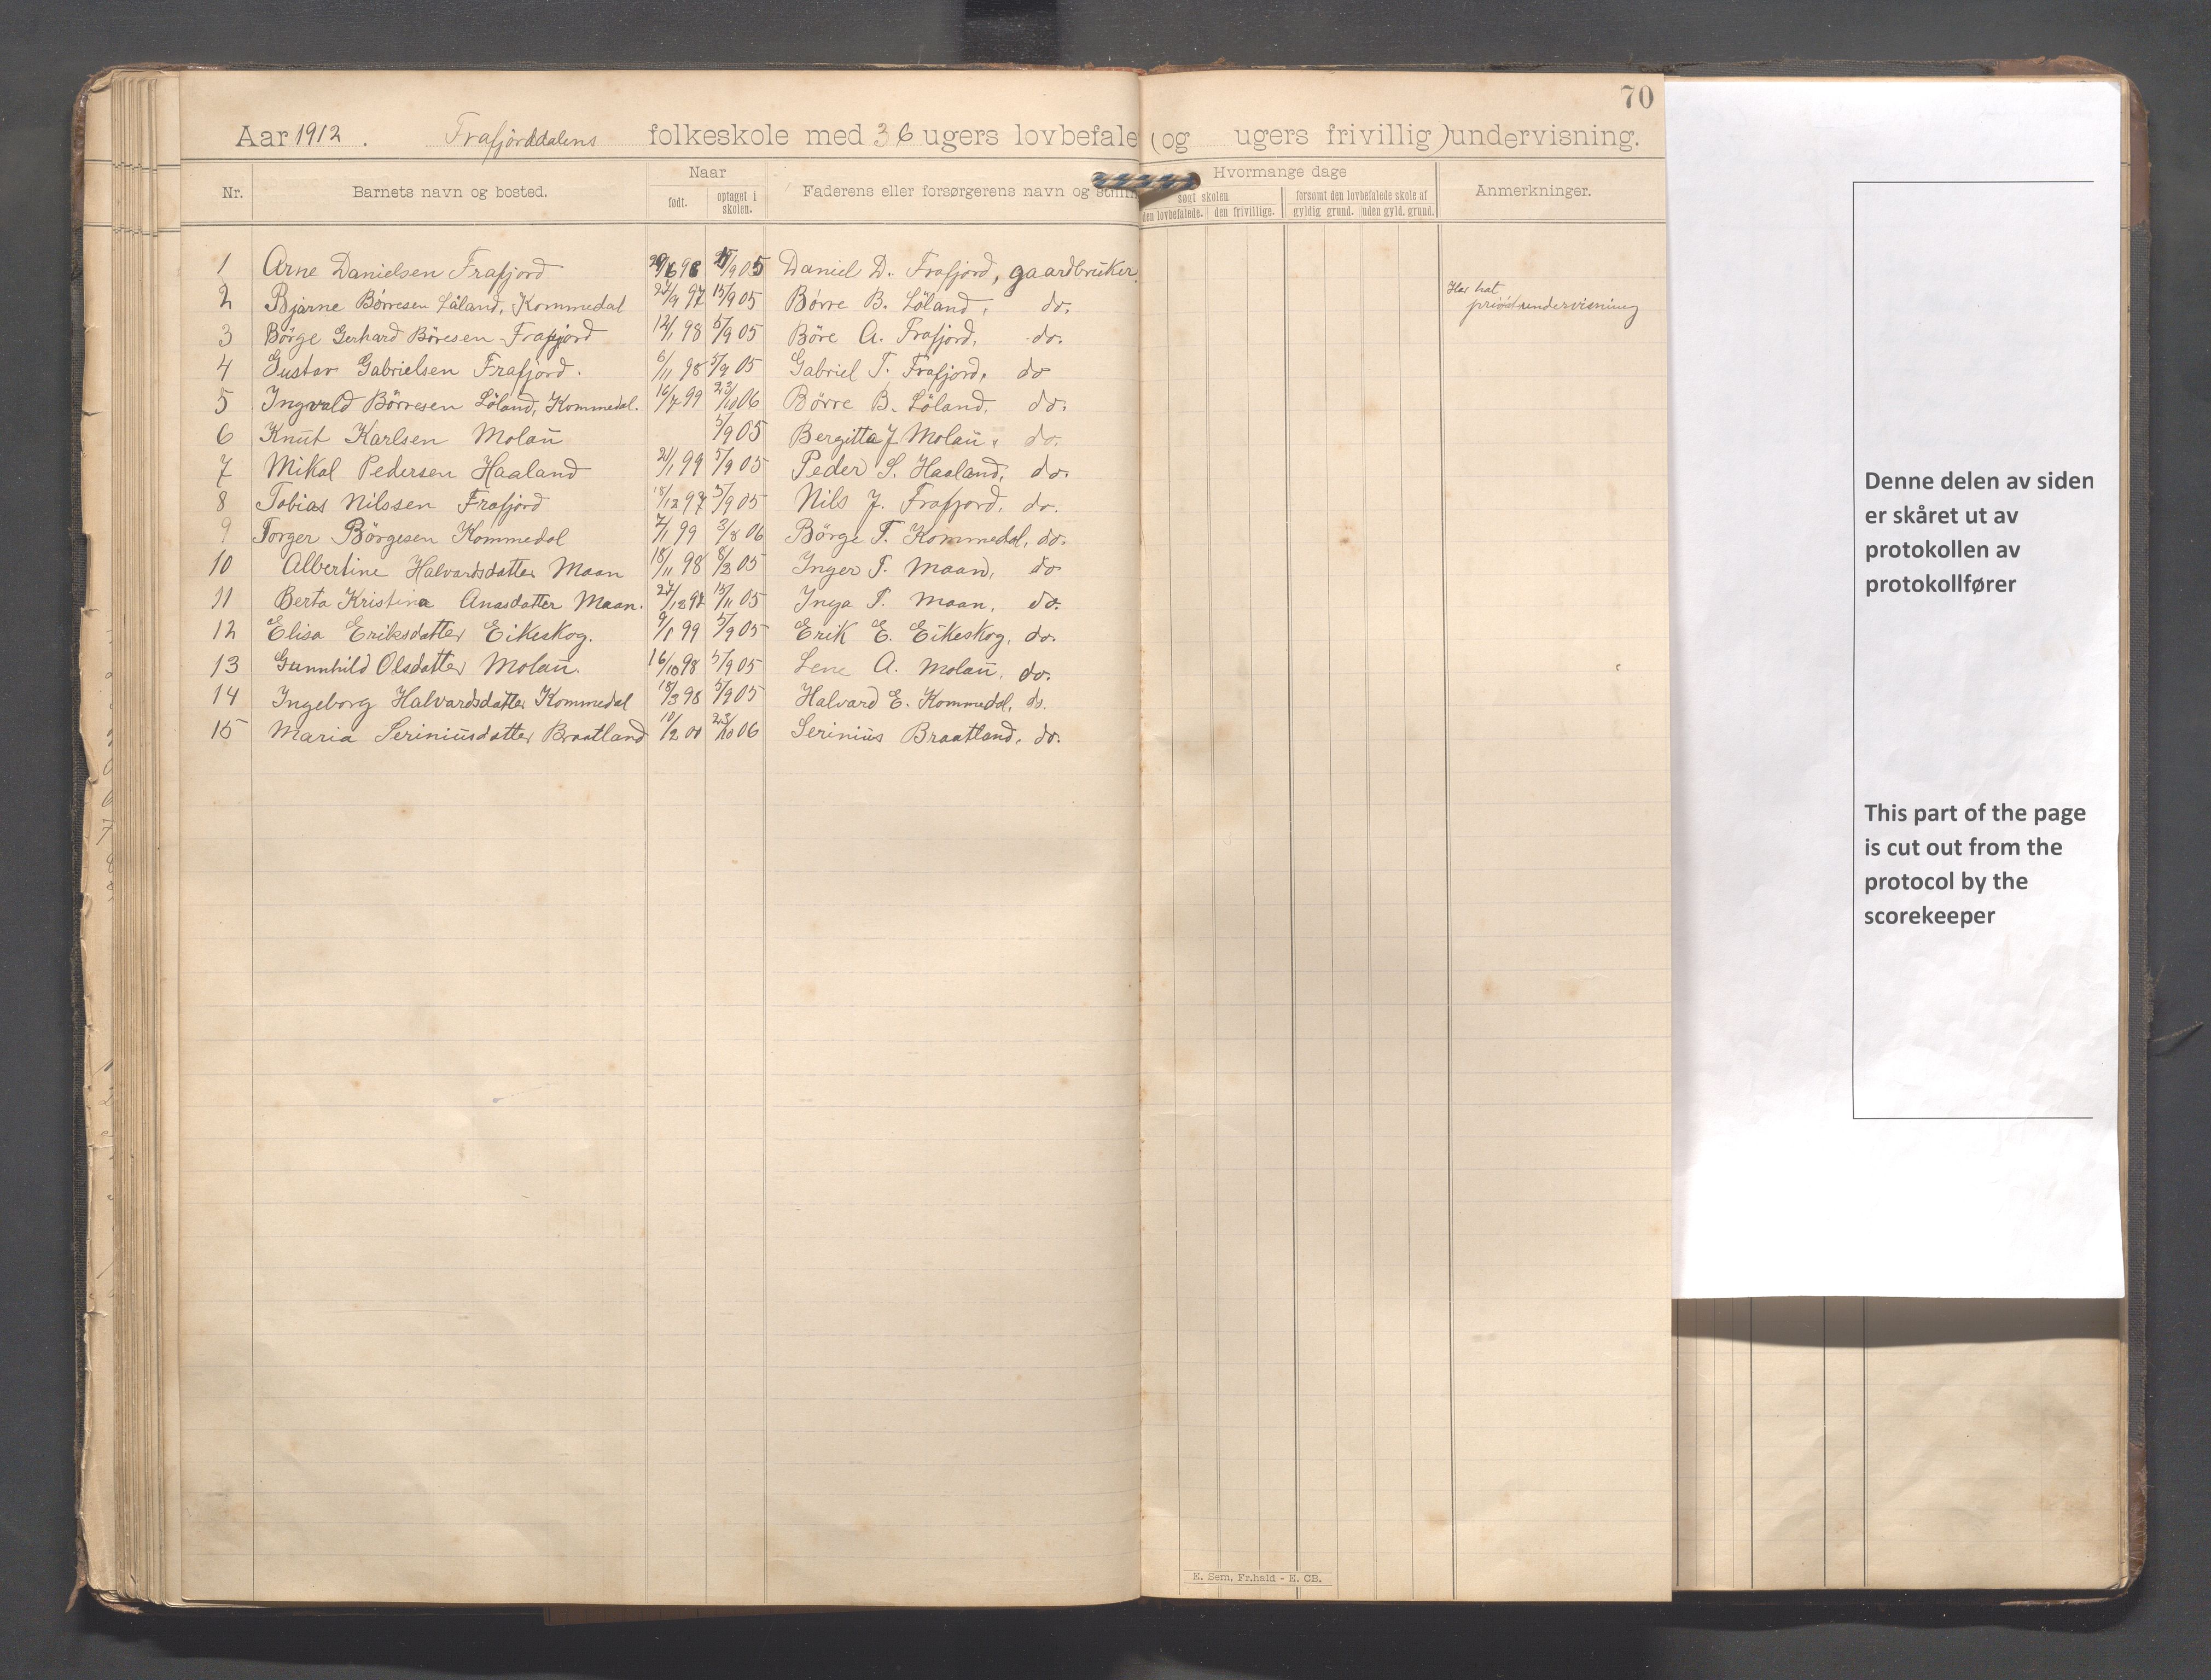 70
Aar 1912. Frafjorddalens folkeskole med 36 ugers lovbefale (og ugers frivillig) undervisning.
Nr. Barnets navn og bosted. Naar Faderens eller forsørgerens navn og Hvormange dage Anmerkninger.
født. optaget i skolen. søgt skolen forsømt den lovbefalede skole af
den lovbefalede. den frivillige. gyldig grund. uden gyld. grund.
1 Arne Danielsen Frafjord 9 05 Daniel D. Frafjord, gaardbruker
2 Bjarne Börresen Löland, Kommedal 27/9 97 15/9 05 Börre B. Löland, do. Har hat privatundervisning
3 Börge Gerhard Böresen Frafjord 12/1 98 5/9 05 Böre A. Frafjord, do.
4 Gustav Gabrielsen Frafjord. 6/11 98 5/9 05 Gabriel T. Frafjord, do
5 Ingvald Börresen Löland, Kommedal. 16/7 99 23/10 06 Börre B. Löland, do.
6 Knut Karlsen Molaü 5/9 05 Bergitta J Molaü, do.
7 Mikal Pedersen Haaland 21/1 99 5/9 05 Peder S. Haaland, do.
8 Tobias Nilssen Frafjord 18/12 97 5/9 05 Nils J. Frafjord, do.
9 Torger Börgesen Kommedal 7/1 99 3/8 06 Börge T. Kommedal, do.
10 Albertine Halvardsdatter Maan 18/11 98 8/3 05 Inger T. Maan, do
11 Berta Kristina Anasdatter Maan. 27/12 97 15/11 05 Inga T. Maan, do.
12 Elisa Eriksdatter Eikeskog. 9/1 99 5/9 05 Erik E. Eikeskog, do.
13 Gunnhild Olsdatter Molaü. 16/10 98 5/9 05 Lene A. Molaü, do.
14 Ingeborg Halvardsdatter Kommedal 18/3 98 5/9 05 Halvard E. Kommedal, do.
15 Maria Seriniüsdatter Braatland 10/2 00 23/10 06 Seriniüs Braatland, do.
E. Sem, Fr.hald - E. CB.
Denne delen av siden
er skåret ut av
protokollen av
protokollfører
This part of the page
is cut out from the
protocol by the
scorekeeper